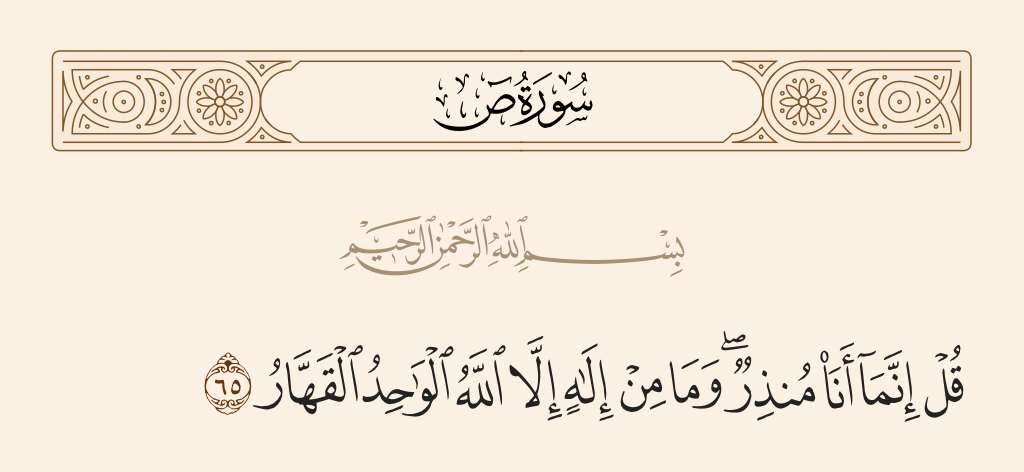 سُورَةُ صٓ
بِسْمِ ٱللَّهِ ٱلرَّحْمَٰنِ ٱلرَّحِيمِ
قُلْ إِنَّمَآ أَنَا۠ مُنذِرٌۭ ۖ وَمَا مِنْ إِلَٰهٍ إِلَّا ٱللَّهُ ٱلْوَٰحِدُ ٱلْقَهَّارُ ٦٥